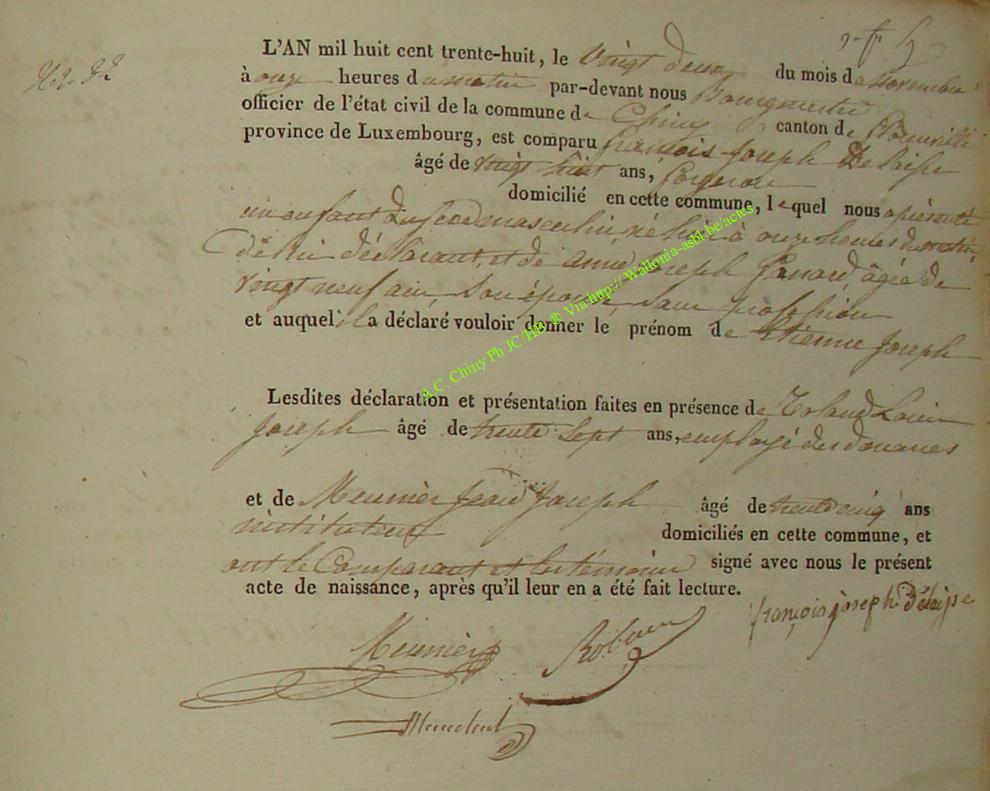 L'AN mil huit cent trente-huit, le vingt deux du mois de novembre
à onze heures du matin par-devant nous Bourgmestre
officier de l'état civil de la commune de Chiny canton de
province de Luxembourg, est comparu françois Joseph Delaisse
âgé de vingt huit ans, forgeron
domicilié en cette commune, lequel nous a présenté
un enfant du sexe masculin, né hier à onze heures du matin,
de lui déclarant, et de anne Joseph âgée de
vingt neuf ans, son épouse, sans profession
et auquel il a déclaré vouloir donner le prénom de Etienne Joseph
Lesdites déclaration et présentation faites en présence de Roland Louis
Joseph âgé de trente sept ans, employé des douanes
et de Meunier Jean Joseph âgé de trente cinq ans
instituteur domiciliés en cette commune, et
ont le Comparant et les témoins signé avec nous le présent
acte de naissance, après qu'il leur en a été fait lecture.
françois joseph délaisse
Meunier
A.C. Chiny Ph JC/HB ® Via http://Wallonia-asbl.be/actes